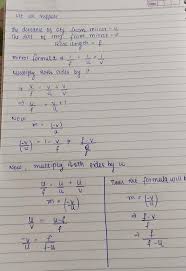 let us suppose
The distance of obj from mirror = u
The dist of img from mirror = v
focal length = f
mirror formula = 1/f = 1/v + 1/u
Multiply both sides by v
⇒ v/f = v/u + v/v
⇒ v/f = v/u + 1
Now
m = (-v/u)
(-v/u) = 1 - v/f
Now, multiply both sides by u
u/f = u/v + u/u
m = (-v/u)
u/v = u-f/f
-v/u = f/f-u
Thus the formula will be
m = (-v/u)
⇒ f-v/f
⇒ f/f-u